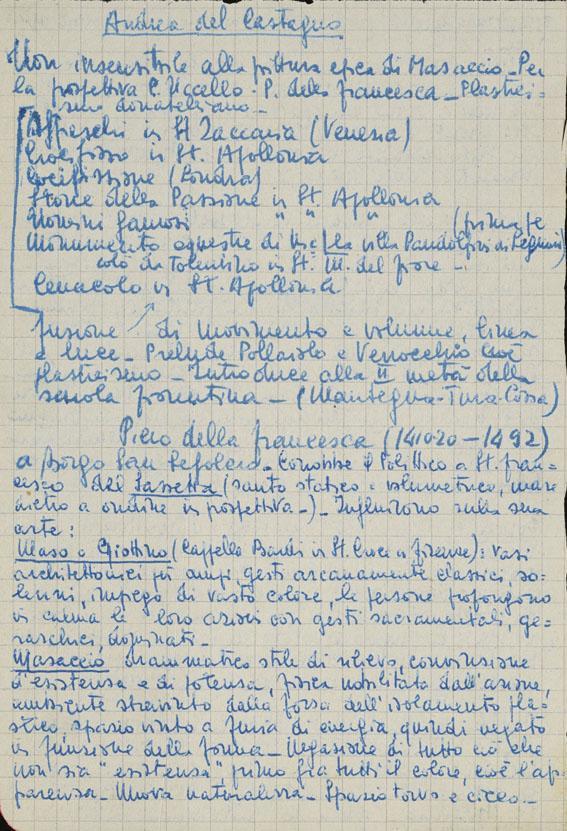 Andrea del Castagno
Non insensibile alla pittura epica di Masaccio - Per
la prospettiva P. Uccello. P. della Francesca - Plastici-
smo donatelliano -
Affreschi in St Zaccaria (Venezia)
Crocifisso in St. Apollonia
Crocifissione (Londra)
Storie della Passione in St. Apollonia
Uomini famosi " " " (prima fe
Monumento equestre di Nic / la villa Pandolfini di Legnaia)
colò da Tolentino in St. M. del fiore -
Cenacolo in St. Apollonia
fusione di movimento e volume, linea
e luce - Prelude Pollaiolo e Verrocchio cioè
plasticismo - Introduce alla II metà della
scuola fiorentina - (Mantegna - Tura - Cossa)
Piero della francesca (1410.20 - 1492)
a Borgo San Sepolcro - Conobbe il Polittico a St. fran-
cesco del Sassetta (santo statico e volumetrico, mare
dietro a ondine in prospettiva -) - Influirono sulla sua
arte:
Maso o Giottino (Cappella Bardi in St. Croce a firenze): vasi
architettonici più ampi, gesti arcanamente classici, so-
lenni, impego di vasto colore, le persone propongono
in cinema le loro azioni con gesti sacramentali, ge-
rarchici, dominati -
Masaccio drammatico stile di rilievo, convinzione
d'esistenza e di potenza, fisica nobilitata dall'azione,
ambiente stravinto dalla forza dell'isolamento pla-
stico, spazio vinto a furia di energia, quindi negato
in funzione della forma - Negazione di tutto ciò che
non sia "esistenza", primo fra tutti il colore, cioè l'ap-
parenza - Nuova naturalezza - Spazio torvo e cieco -